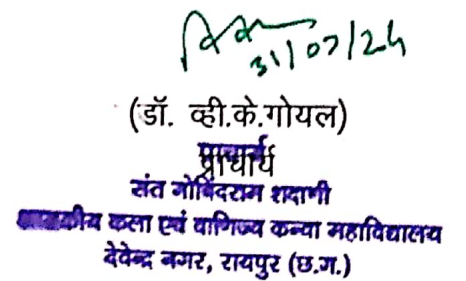 31/07/24
(डॉ. व्ही.के.गोयल)
प्राचार्य
संत गोविंदराम शदाणी
शासकीय कला एवं वाणिज्य कन्या महाविद्यालय
देवेन्द्र नगर, रायपुर (छ.ग.)